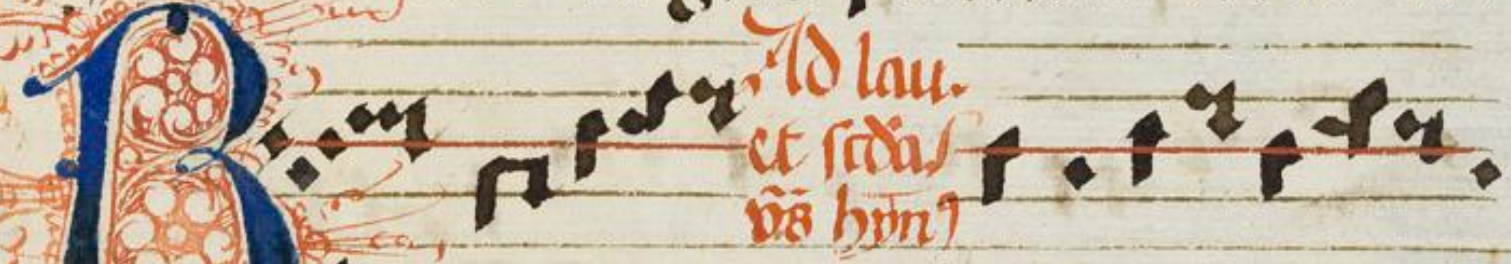 R
Ad lau.
et scd'as
vs̄ hym9